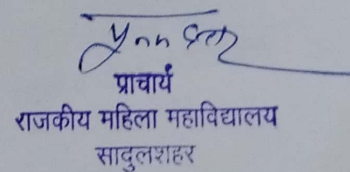 प्राचार्य
राजकीय महिला महाविद्यालय
सादुलशहर